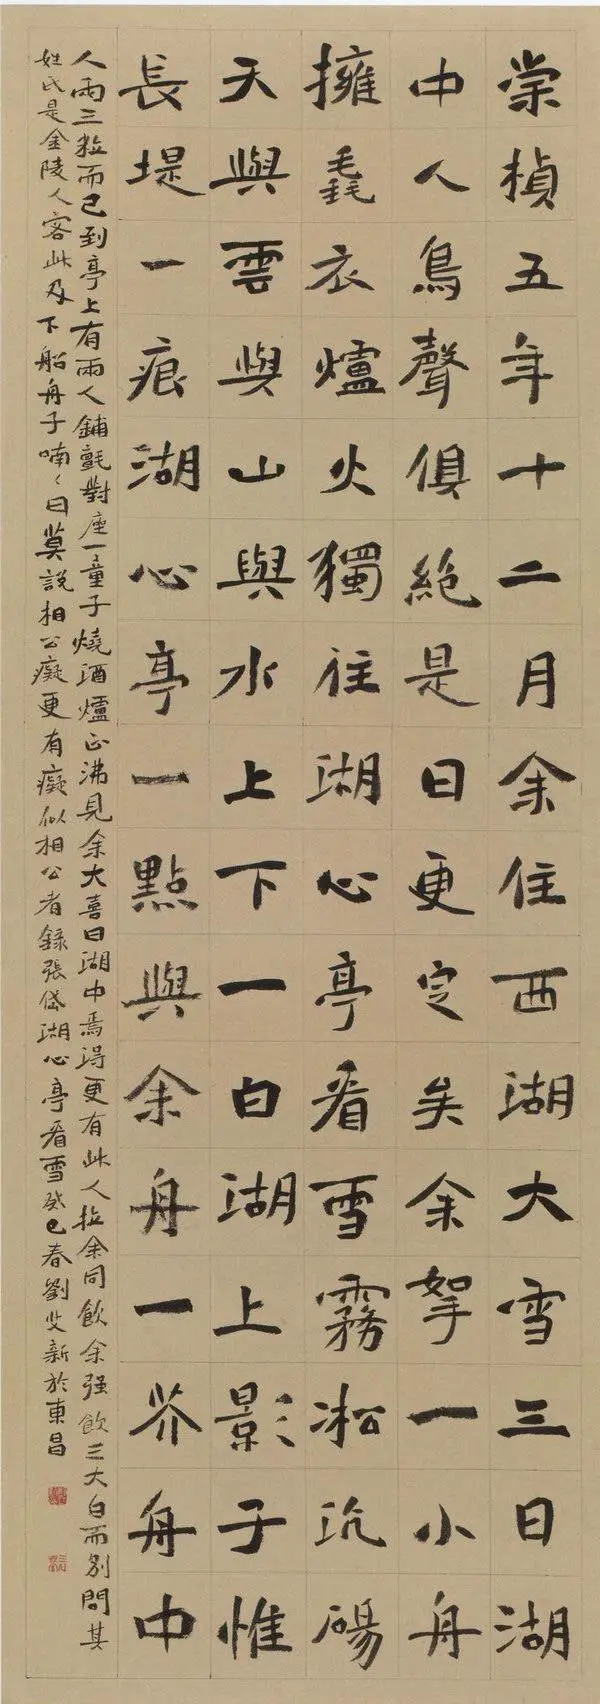 崇禎五年十二月余住西湖大雪三日湖
中人鳥聲俱絕是日更定矣余拏一小舟
擁毳衣爐火獨往湖心亭看雪霧凇沆碭
天與雲與山與水上下一白湖上影子惟
長堤一痕湖心亭一點與余舟一芥舟中
人兩三粒而已到亭上有兩人鋪氈對座一童子燒酒爐正沸見余大喜曰湖中焉得更有此人拉余同飲余強飲三大白而別問其
姓氏是金陵人客此及下船舟子喃〻曰莫說相公癡更有癡似相公者錄張岱湖心亭看雪癸巳春劉新於東昌